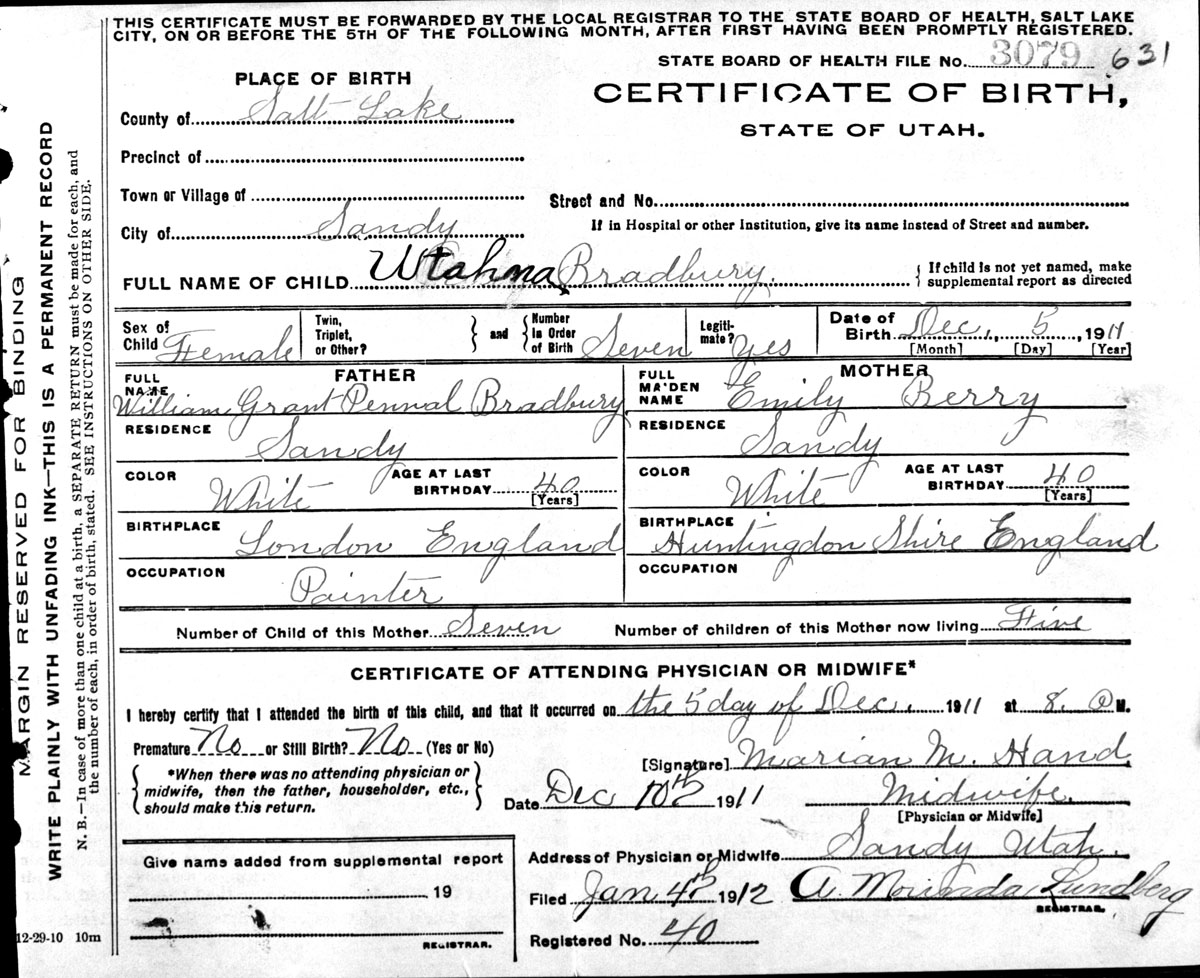 THIS CERTIFICATE MUST BE FORWARDED BY THE LOCAL REGISTRAR TO THE STATE BOARD OF HEALTH, SALT LAKE
CITY, ON OR BEFORE THE 5TH OF THE FOLLOWING MONTH, AFTER FIRST HAVING BEEN PROMPTLY REGISTERED.
STATE BOARD OF HEALTH FILE NO. 3079 631
PLACE OF BIRTH
CERTIFICATE OF BIRTH,
STATE OF UTAH.
County of Salt Lake
Precinct of
Town or Village of
Street and No.
City of Sandy
If in Hospital or other Institution, give its name instead of Street and number.
FULL NAME OF CHILD Utahna Bradbury.
If child is not yet named, make
supplemental report as directed
Sex of
Child Female
Twin,
Triplet,
or Other?
and
Number
in Order
of Birth Seven
Legiti-
mate? Yes
Date of
Birth Dec. 5, 1911
[Month] [Day] [Year]
FATHER
FULL
NAME
William Grant Pennal Bradbury
MOTHER
FULL
MAIDEN
NAME Emily Berry
RESIDENCE
Sandy
RESIDENCE
Sandy
COLOR
White
AGE AT LAST
BIRTHDAY 40
[Years]
COLOR
White
AGE AT LAST
BIRTHDAY 40
[Years]
BIRTHPLACE
London England
BIRTHPLACE
Huntingdon Shire England
OCCUPATION
Painter
OCCUPATION
Number of Child of this Mother Seven Number of children of this Mother now living Five
CERTIFICATE OF ATTENDING PHYSICIAN OR MIDWIFE*
I hereby certify that I attended the birth of this child, and that it occurred on the 5 day of Dec. 1911 at 8. M.
Premature No or Still Birth? No (Yes or No)
*When there was no attending physician or
midwife, then the father, householder, etc.,
should make this return.
[Signature] Marian M. Hand
Date Dec 10th 1911 Midwife.
[Physician or Midwife]
Give name added from supplemental report
19
REGISTRAR.
12-29-10 10m
Address of Physician or Midwife Sandy Utah.
Filed Jan 4th 1912 A. Morinda Lundberg
REGISTRAR.
Registered No. 40
MARGIN RESERVED FOR BINDING
WRITE PLAINLY WITH UNFADING INK—THIS IS A PERMANENT RECORD
N. B.—In case of more than one child at a birth, a SEPARATE RETURN must be made for each, and
the number of each, in order of birth, stated. SEE INSTRUCTIONS ON OTHER SIDE.